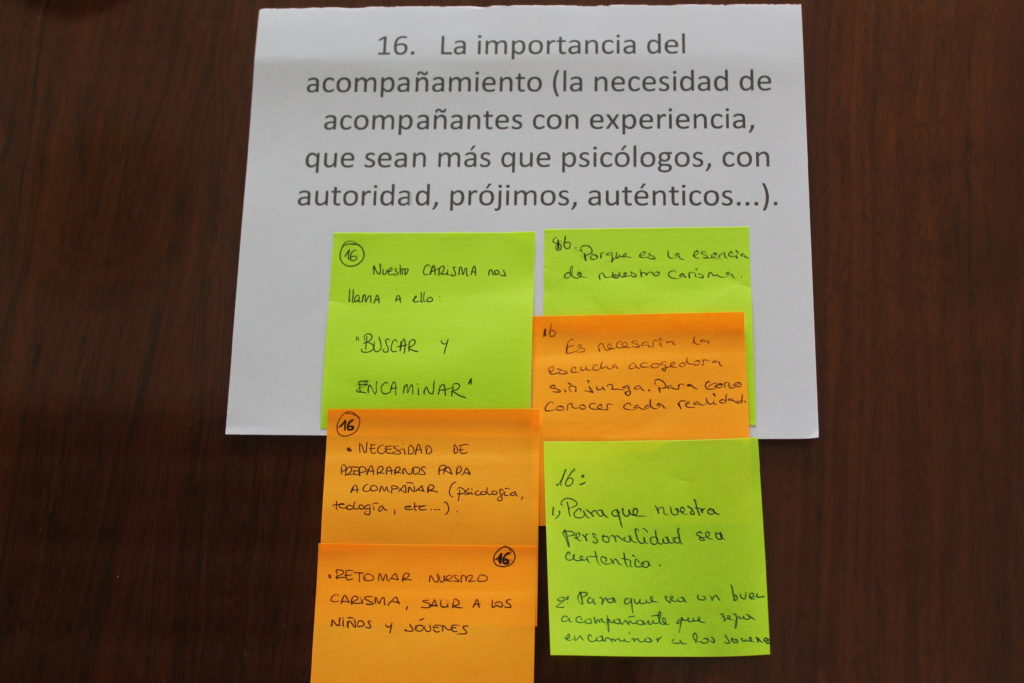 16. La importancia del
acompañamiento (la necesidad de
acompañantes con experiencia,
que sean más que psicólogos, con
autoridad, prójimos, auténticos...).
16
Nuestro CARISMA nos
llama a ello:
"BUSCAR Y
ENCAMINAR"
16
• NECESIDAD DE
PREPARARNOS PARA
ACOMPAÑAR (psicología,
teología, etc...).
16
• RETOMAR NUESTRO
CARISMA, SALIR A LOS
NIÑOS Y JÓVENES
16.
Porque es la esencia
de nuestro carisma.
16
Es necesaria la
escucha acogedora
sin juzga. Para como
conocer cada realidad.
16:
1) Para que nuestra
personalidad sea
autentica.
2: Para que sea un buen
acompañante que sepa
encaminar a los jovenes